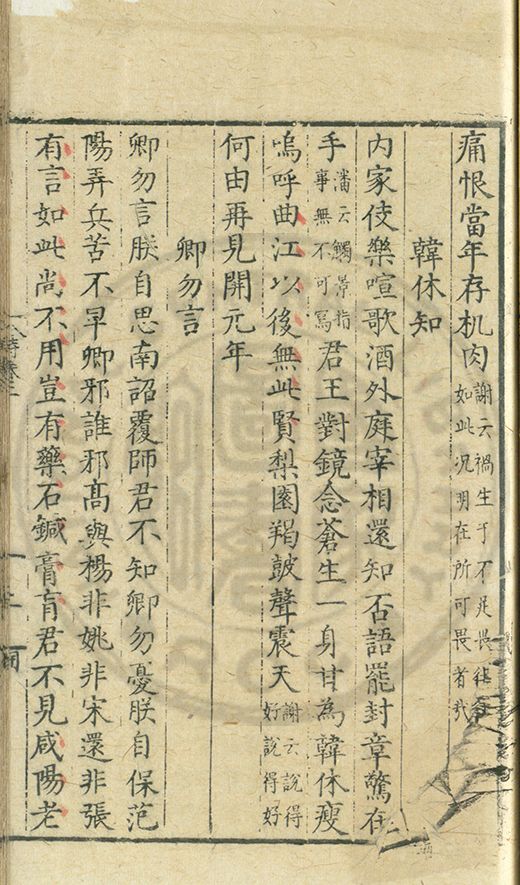 痛恨當年存机肉謝云禍生于不足畏往徃
如此况明在所可畏者哉
韓休知
内家伎樂喧歌酒外庭宰相還知否語罷封章驚在
手潘云觸景指
事無不可寫君王對鏡念蒼生一身甘為韓休瘦
嗚呼曲江以後無此賢梨園羯鼓聲震天謝云說得
好說得好
何由再見開元年
卿勿言
卿勿言朕自思南詔覆師君不知卿勿憂朕自保范
陽弄兵苦不早卿邪誰邪高與楊非姚非宋還非張
有言如此尚不用豈有藥石鍼膏肓君不見咸陽老